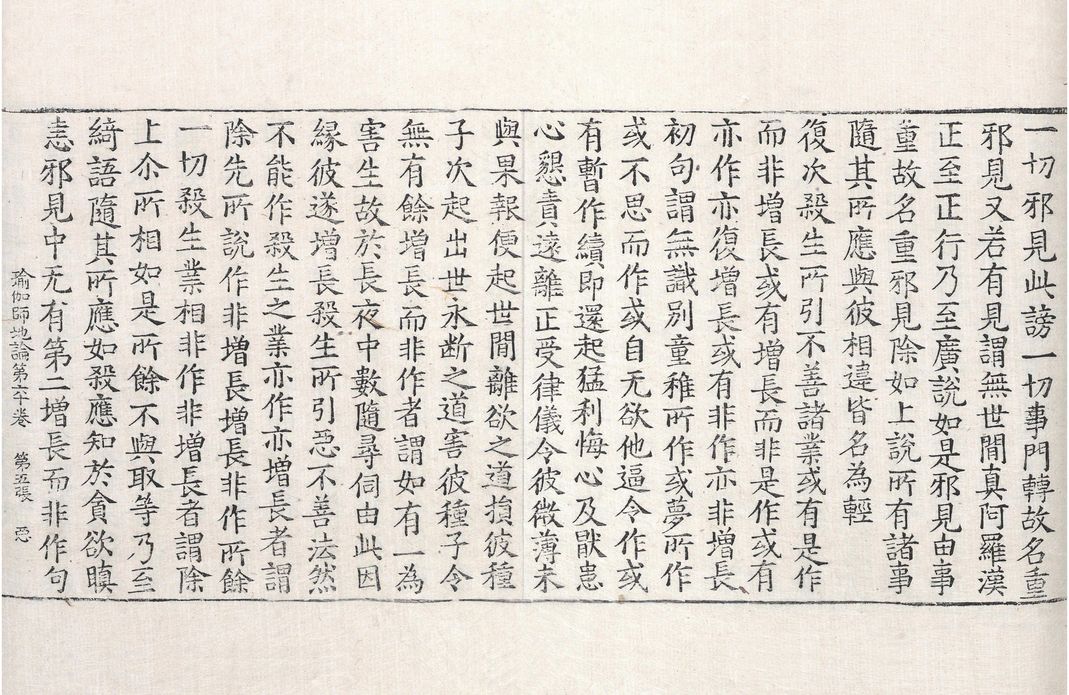 一切邪見此謗一切事門轉故名重
邪見又若有見謂無世間真阿羅漢
正至正行乃至廣說如是邪見由事
重故名重邪見除如上說所有諸事
隨其所應與彼相違皆名為輕
復次殺生所引不善諸業或有是作
而非增長或有增長而非是作或有
亦作亦復增長或有非作亦非增長
初句謂無識別童稚所作或夢所作
或不思而作或自无欲他逼令作或
有暫作續即還起猛利悔心及猒患
心懇責遠離正受律儀令彼微薄未
與果報便起世間離欲之道損彼種
子次起出世永断之道害彼種子令
無有餘增長而非作者謂如有一為
害生故於長夜中數隨尋伺由此因
緣彼遂增長殺生所引惡不善法然
不能作殺生之業亦作亦增長者謂
除先所說作非增長增長非作所餘
一切殺生業相非作非增長者謂除
上尒所相如是所餘不與取等乃至
綺語隨其所應如殺應知於貪欲瞋
恚邪見中无有第二增長而非作句
瑜伽師地論第六十卷　第五張　惡